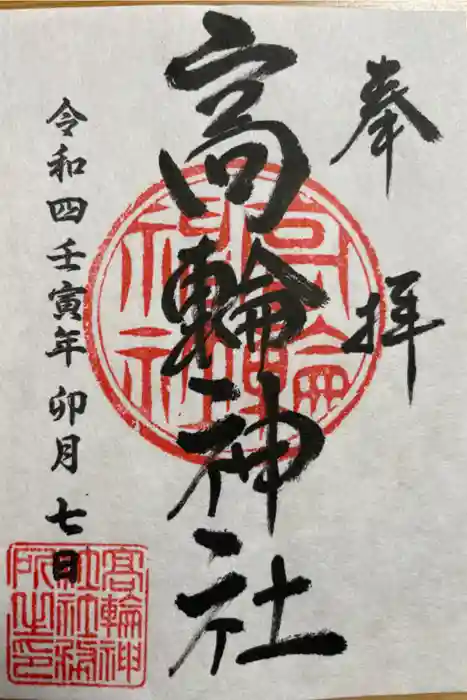 奉拝
高輪神社
令和四壬寅年 卯月 七日
高輪神社
高輪神社社務所之印